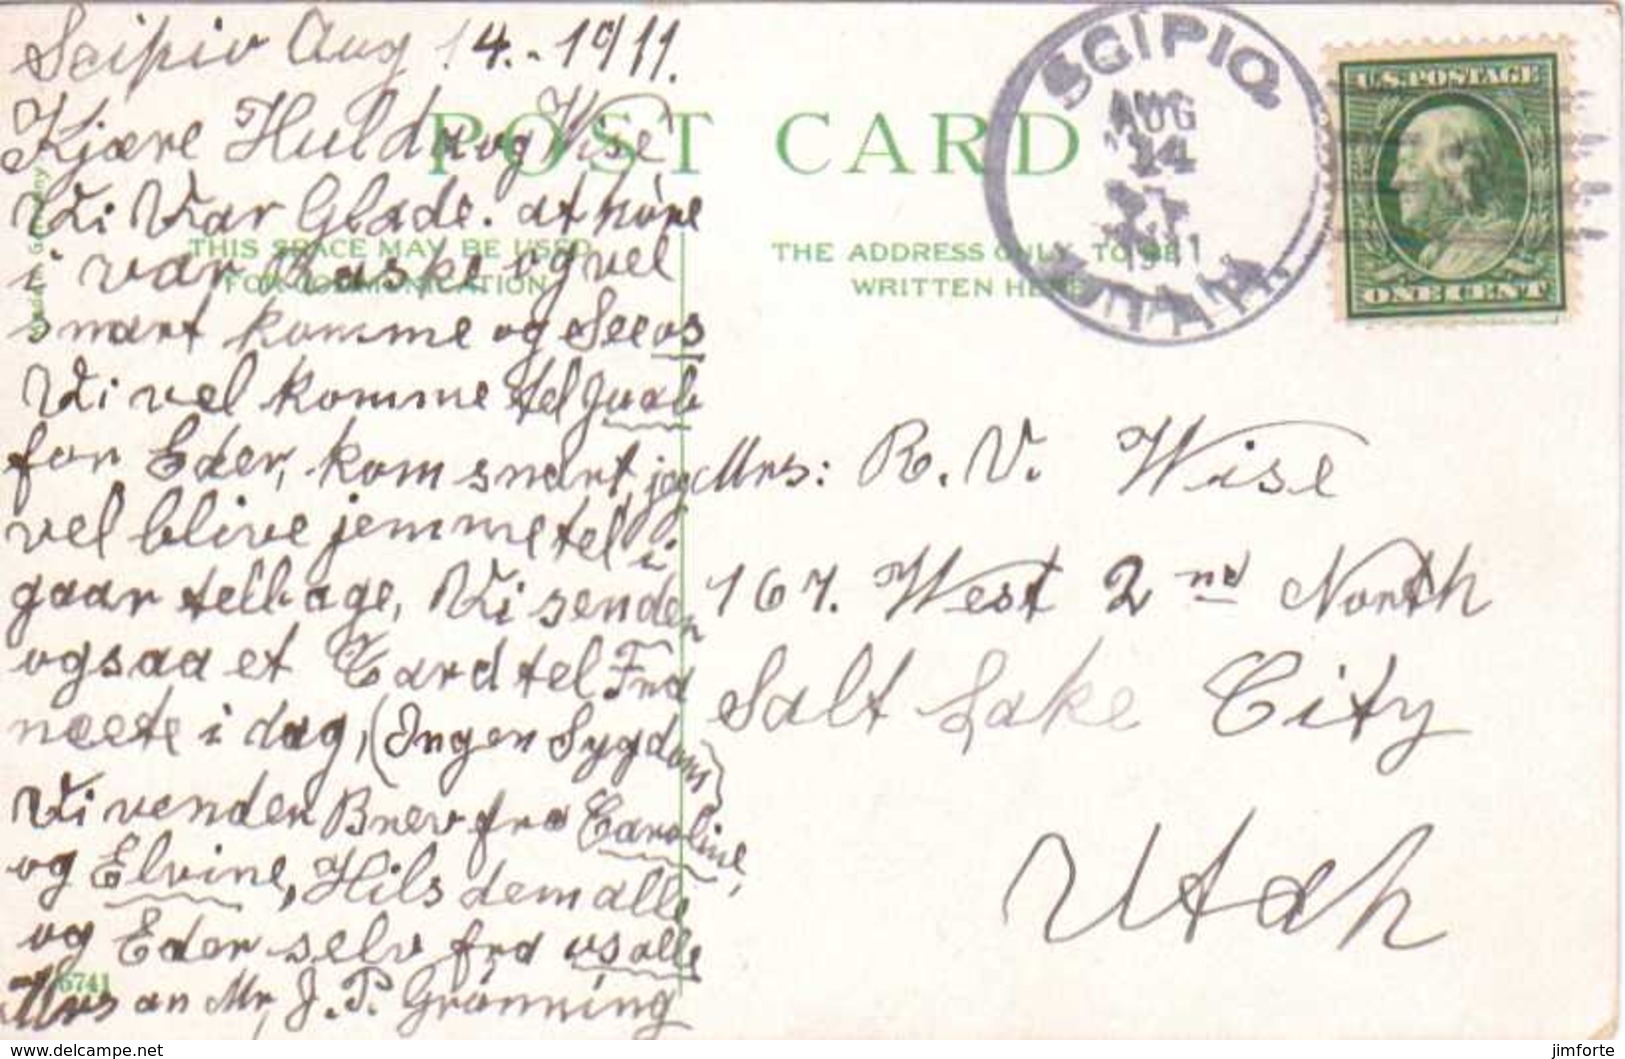 Scipio Aug 14.-1911.
Kjære Hulda og Wise
Vi Var Glade. at höre
i var Raske og vel
snart komme og See os
Vi vel komme tel Juab
for Eder, kom snart, jeg
vel blive jemme tel i
gaar telbage, Vi sender
ogsaa et Card tel Fra
neete i dag, (Ingen Sygdom)
Vi venden Brev fra Caroline,
og Elvine, Hils dem alle
og Eder selv fra os alle
Mrs an Mr, J. P. Grönning
POST CARD
THIS SPACE MAY BE USED
FOR COMMUNICATION
THE ADDRESS ONLY TO BE
WRITTEN HERE
6741
SCIPIO,
AUG
14
1911
UTAH.
U.S. POSTAGE
ONE CENT
Mrs: R. V. Wise
167. West 2nd North
Salt Lake City
Utah
www.delcampe.net
jimforte